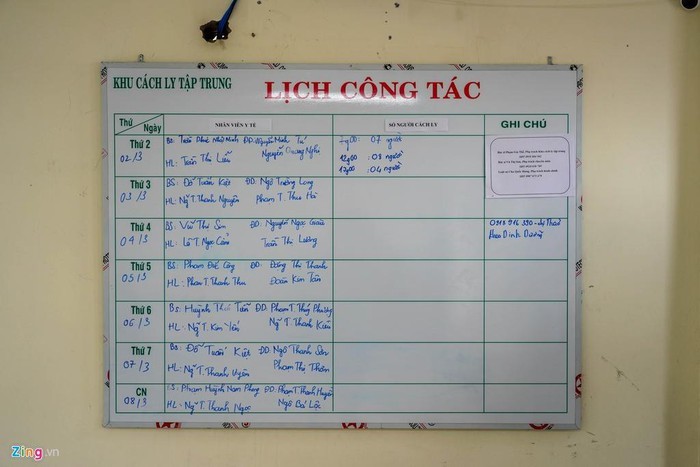 KHU CÁCH LY TẬP TRUNG
LỊCH CÔNG TÁC
Thứ Ngày
NHÂN VIÊN Y TẾ
SỐ NGƯỜI CÁCH LY
GHI CHÚ
Thứ 2
02/3
BS: Trần Như Minh ĐD: Nguyễn Minh Tú
HL: Trần Thị Lầu Nguyễn Quang Nghi
7g00: 07 người
12g00: 08 người
17g00: 04 người
Thứ 3
03/3
BS: Đỗ Tuấn Kiệt ĐD: Ngô Trường Long
HL: Ng T. Thanh Nguyên Phạm T. Thu Hà
Thứ 4
04/3
BS: Vũ Thị Sen ĐD: Nguyễn Ngọc
HL: Lê T. Ngọc Cẩm Trần Thị Lương
Dinh Dưỡng
Thứ 5
05/3
BS: Phạm Đức Công ĐD: Đặng Thị Thanh
HL: Phan T. Thanh Thu Đoàn Kim Tân
Thứ 6
06/3
BS: Huỳnh Thái Tấn ĐD: Phạm T. Thúy Phượng
HL: Ng T. Kim Yến Ng T. Thanh Kiều
Thứ 7
07/3
BS: Đỗ Tuấn Kiệt ĐD: Ngô Thanh Sơn
HL: Ng T. Thanh Uyên Phạm Thị Thơm
CN
08/3
BS: Phạm Huỳnh Nam Phong ĐD: Phạm T. Thanh Huyền
HL: Ng T. Thanh Ngọc Ngô Bá Lộc
Zing.vn